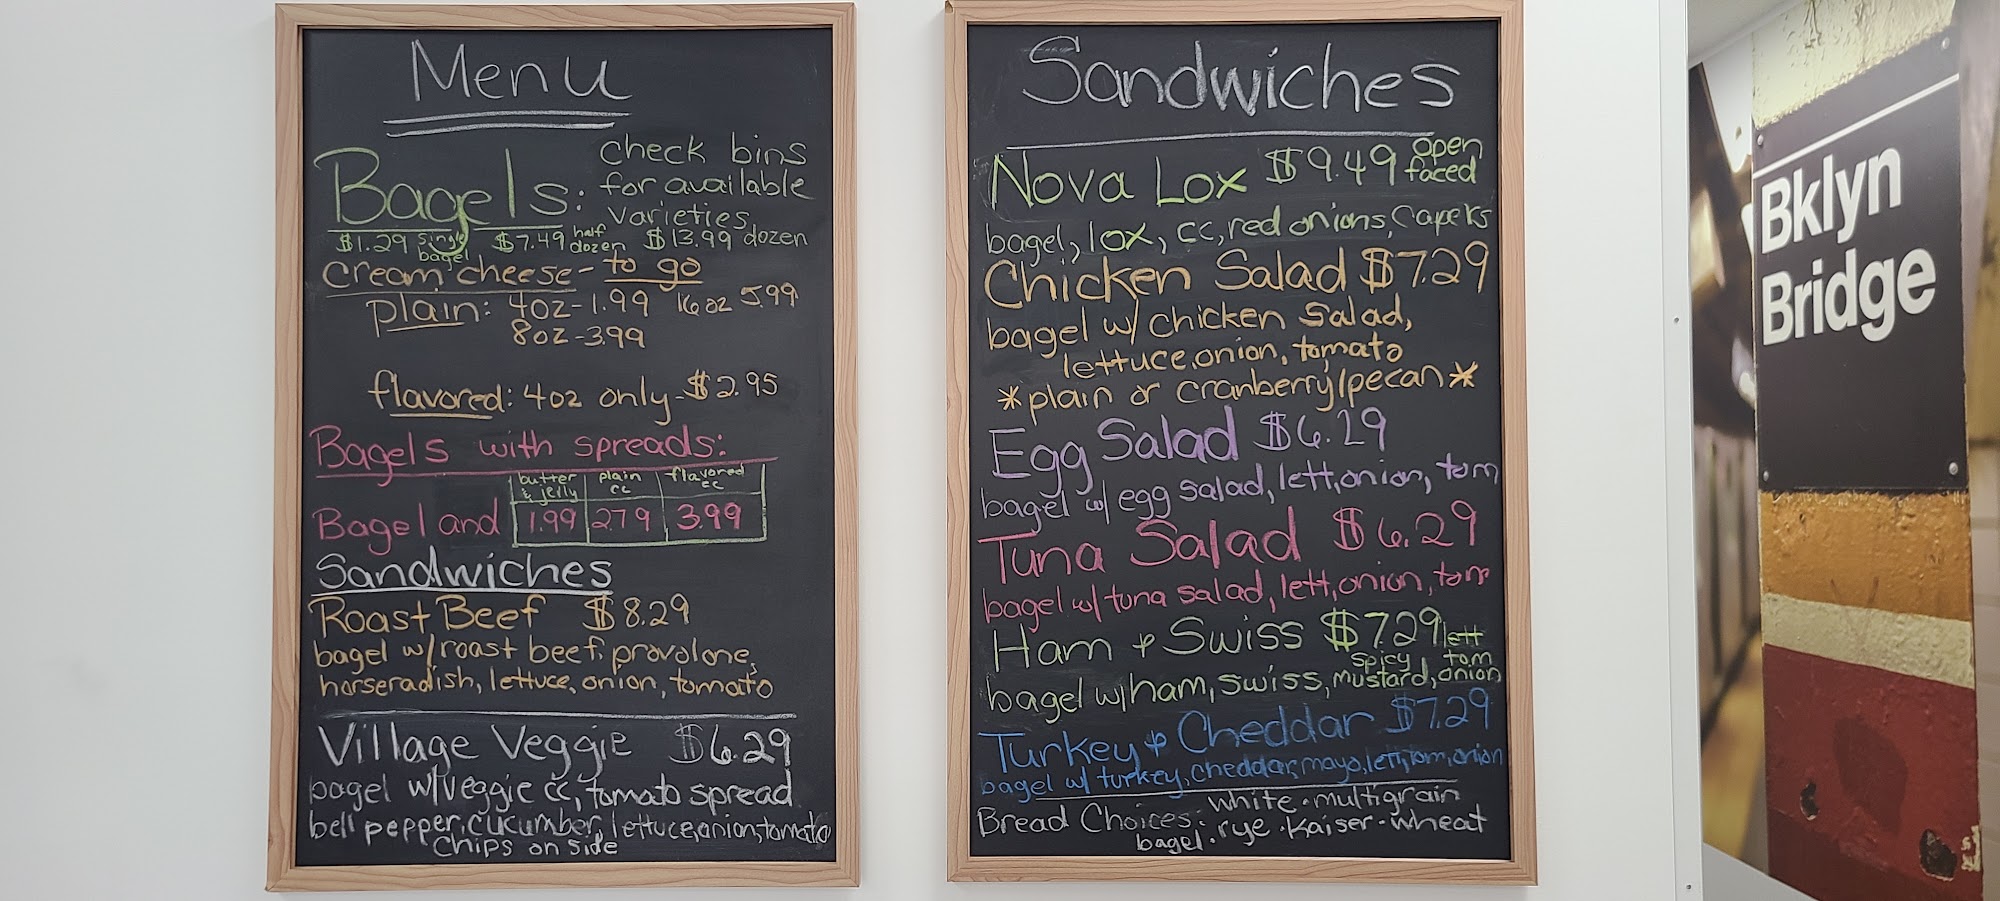 Menu
Bagels: check bins
for available
varieties
$1.29 single bagel $7.49 half dozen $13.99 dozen
cream cheese - to go
plain: 4oz-1.99 16oz 5.99
8oz-3.99
flavored: 4oz only-$2.95
Bagels with spreads:
butter & jelly plain cc flavored cc
Bagel and 1.99 2.79 3.99
Sandwiches
Roast Beef $8.29
bagel w/roast beef, provolone,
horseradish, lettuce, onion, tomato
Village Veggie $6.29
bagel w/veggie cc, tomato spread
bell pepper, cucumber, lettuce, onion, tomato
Chips on side
Sandwiches
Nova Lox $9.49 open faced
bagel, lox, cc, red onions, Capers
Chicken Salad $7.29
bagel w/ chicken salad,
lettuce, onion, tomato
*plain or cranberry/pecan*
Egg Salad $6.29
bagel w/ egg salad, lett, onion, tom
Tuna Salad $6.29
bagel w/ tuna salad, lett, onion, tom
Ham & Swiss $7.29
bagel w/ham, swiss, spicy mustard, lett tom onion
Turkey & Cheddar $7.29
bagel w/ turkey, cheddar, mayo, lett, tom, onion
Bread Choices: white · multigrain
bagel · rye · Kaiser · wheat
Bklyn
Bridge